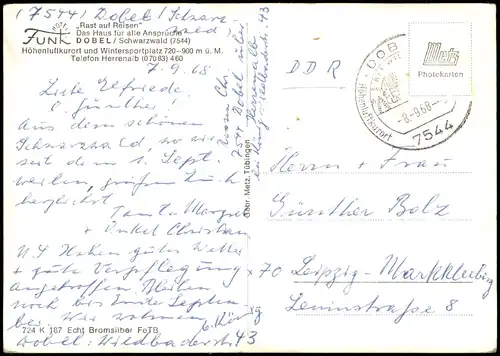 (7544) Dobel/Schwarzwald
HOTEL FUNK
"Rast auf Reisen"
Das Haus für alle Ansprüche
DOBEL/Schwarzwald (7544)
Höhenluftkurort und Wintersportplatz 720–900 m ü. M.
Telefon Herrenalb (07083) 460
7.9.68
Liebe Elfriede
Günther!
Aus dem schönen
Schwarzwald, wo wir
seit dem 1. Sept.
weilen, grüßen Euch
herzlichst
Tante Margret
+ Onkel Christian
N.S. Haben gutes Wetter
+ gute Verpflegung
angetroffen. Bleiben
noch bis Ende Septem-
ber. Wir wohnen
b. König
Dobel: Wildbaderstr 43
724 K 187 Echt Bromsilber FoTB
7544 Dobel über
Herrenalb
Gebr. Metz, Tübingen
DDR
DOBEL
Höhenluftkurort
-8-9.68-
7544
Metz
Photokarten
Herrn + Frau
Günther Bolz
x70 Leipzig-Markkleeberg
Leninstraße 8